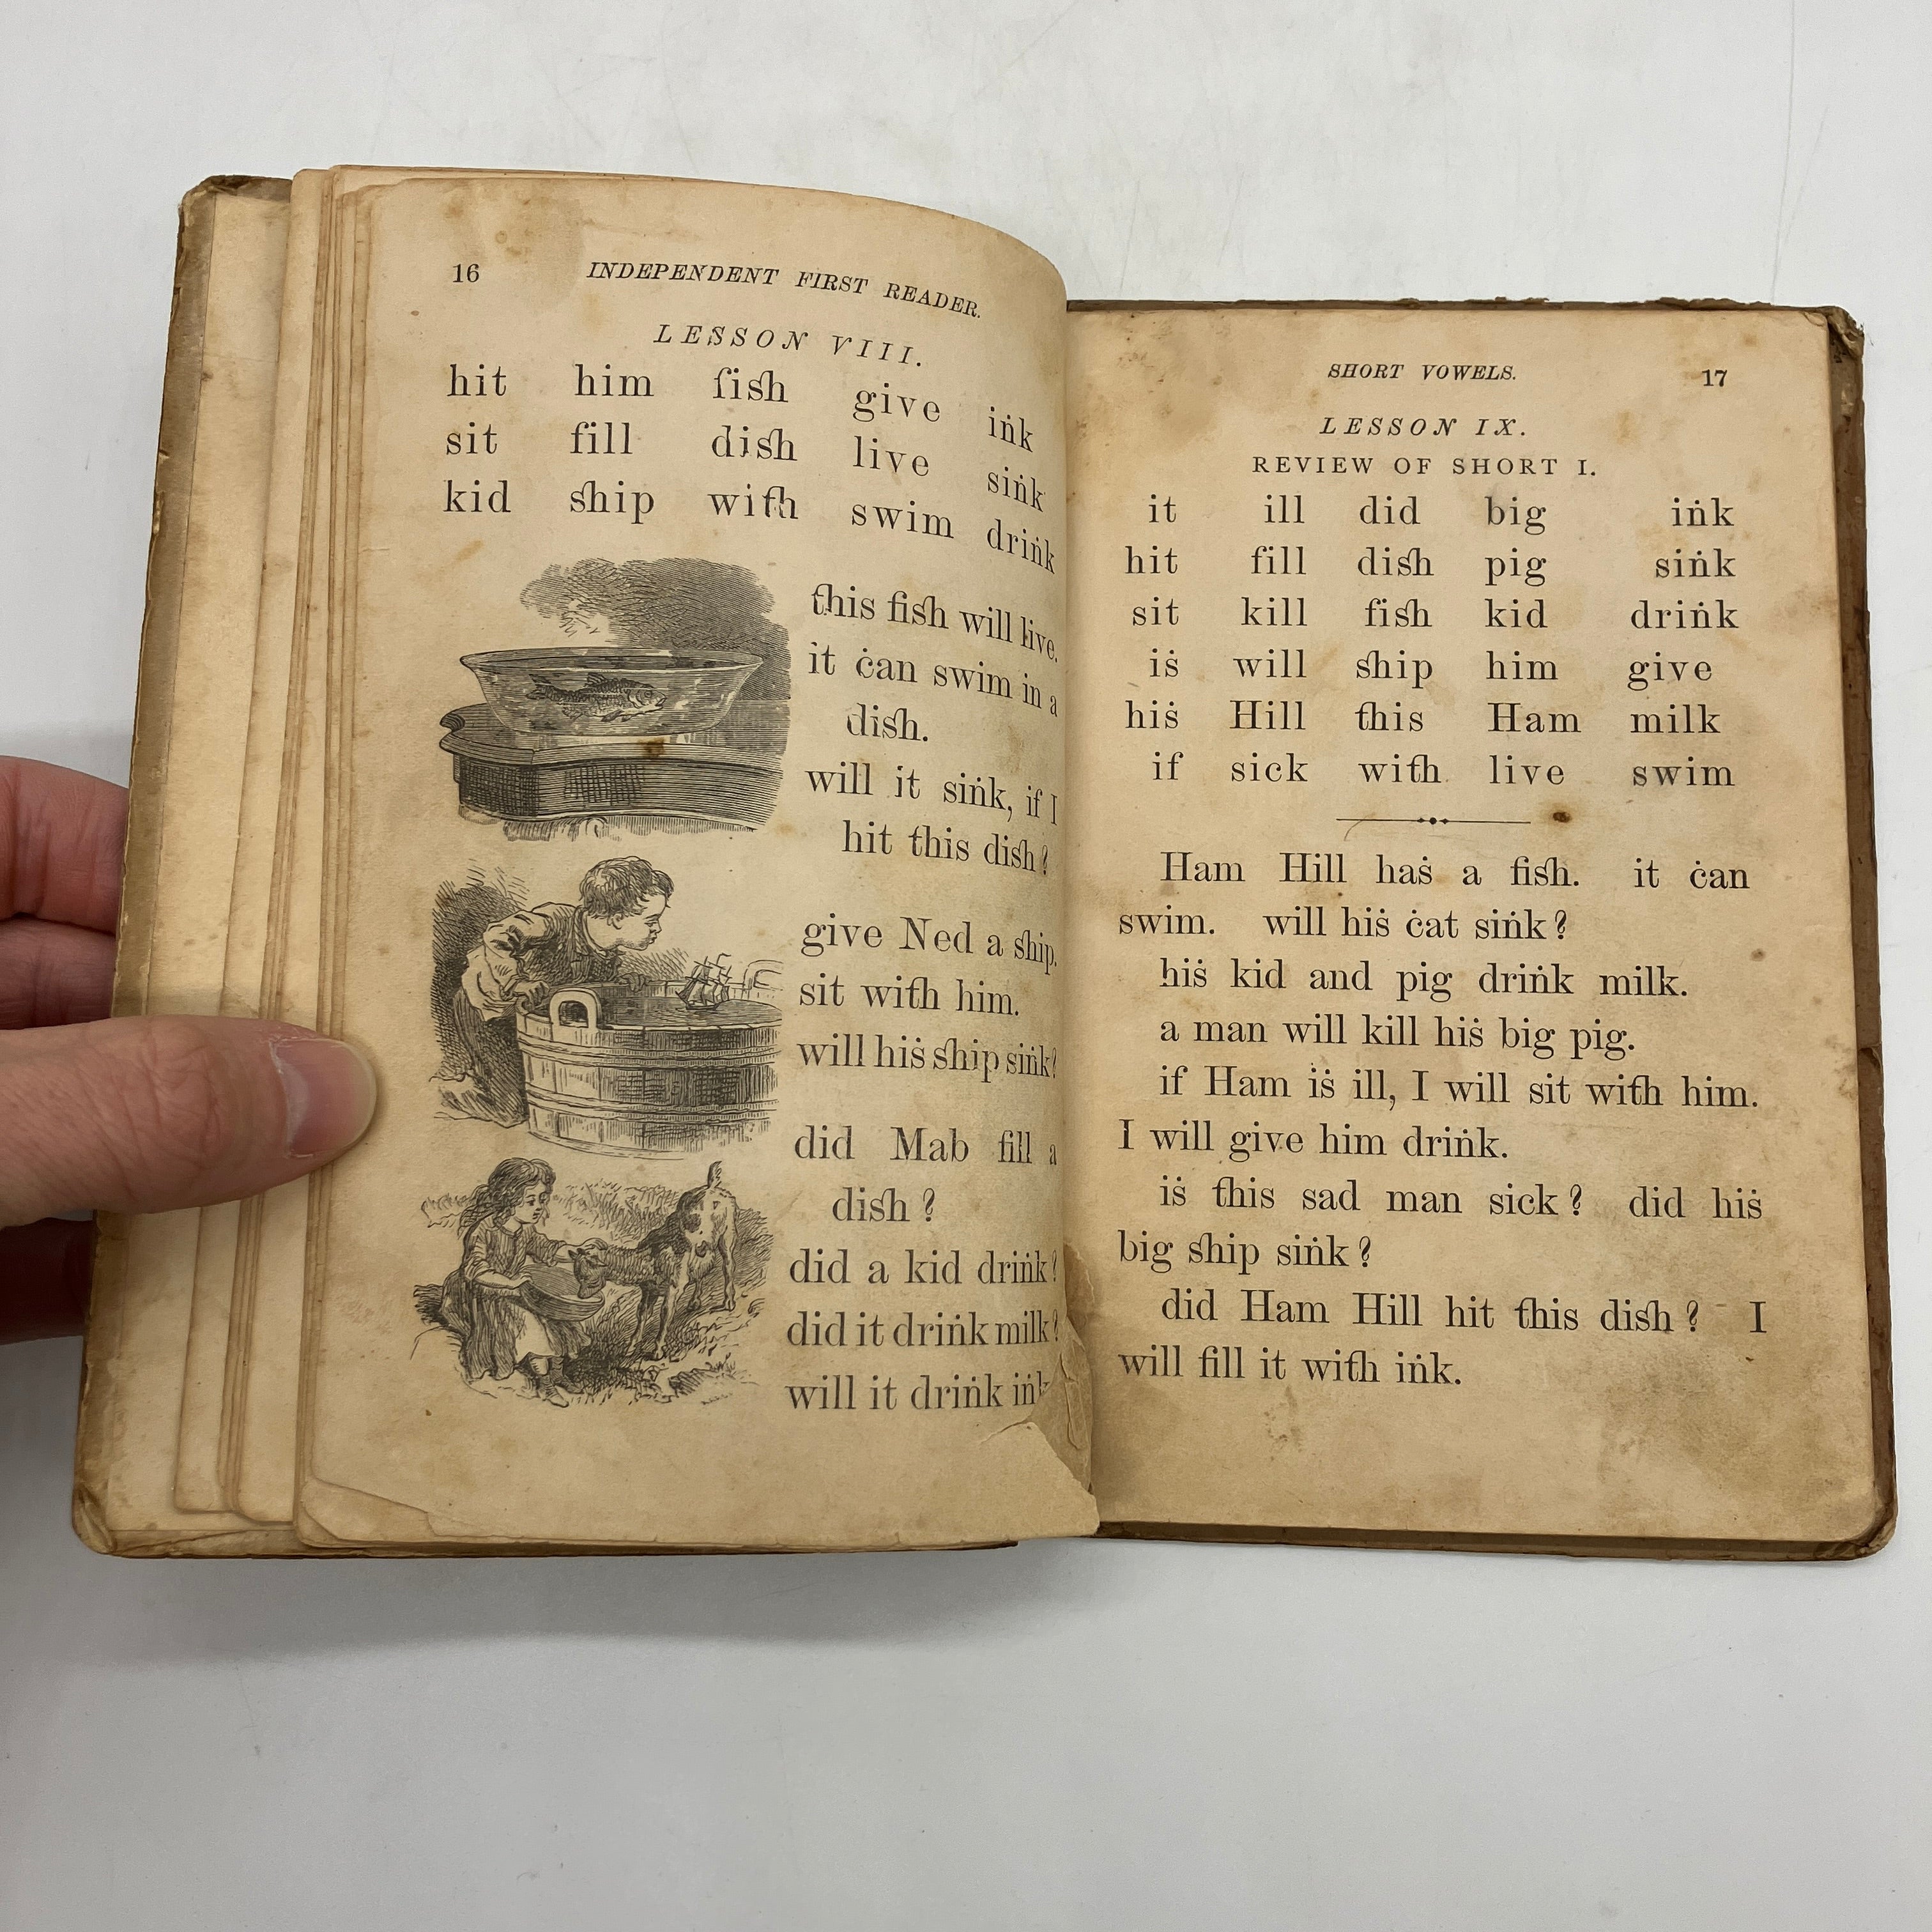 16 INDEPENDENT FIRST READER.
LESSON VIII.
hit him fish give iṅk
sit fill dish live siṅk
kid ship with swim driṅk
this fish will live.
it ċan swim in a
dish.
will it siṅk, if I
hit this dish?
give Ned a ship.
sit with him.
will hiṡ ship siṅk?
did Mab fill a
dish?
did a kid driṅk?
did it driṅk milk?
will it driṅk iṅk
SHORT VOWELS. 17
LESSON IX.
REVIEW OF SHORT I.
it ill did big iṅk
hit fill dish pig siṅk
sit kill fish kid driṅk
iṡ will ship him give
hiṡ Hill this Ham milk
if sick with live swim
Ham Hill haṡ a fish. it ċan
swim. will hiṡ ċat siṅk?
hiṡ kid and pig driṅk milk.
a man will kill hiṡ big pig.
if Ham iṡ ill, I will sit with him.
I will give him driṅk.
iṡ this sad man sick? did hiṡ
big ship siṅk?
did Ham Hill hit this dish? I
will fill it with iṅk.